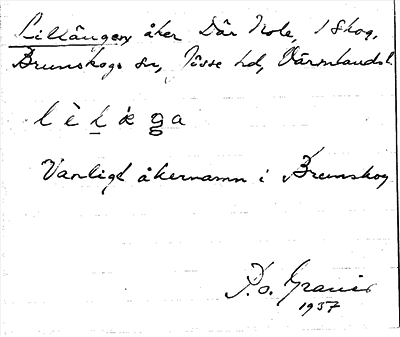 Lillängen, åker Där Nole, 1 Skog,
Brunskogs sn, Jösse hd, Värmlands l.
Vanligt åkernamn i Brunskog
P. s. Granér
1937